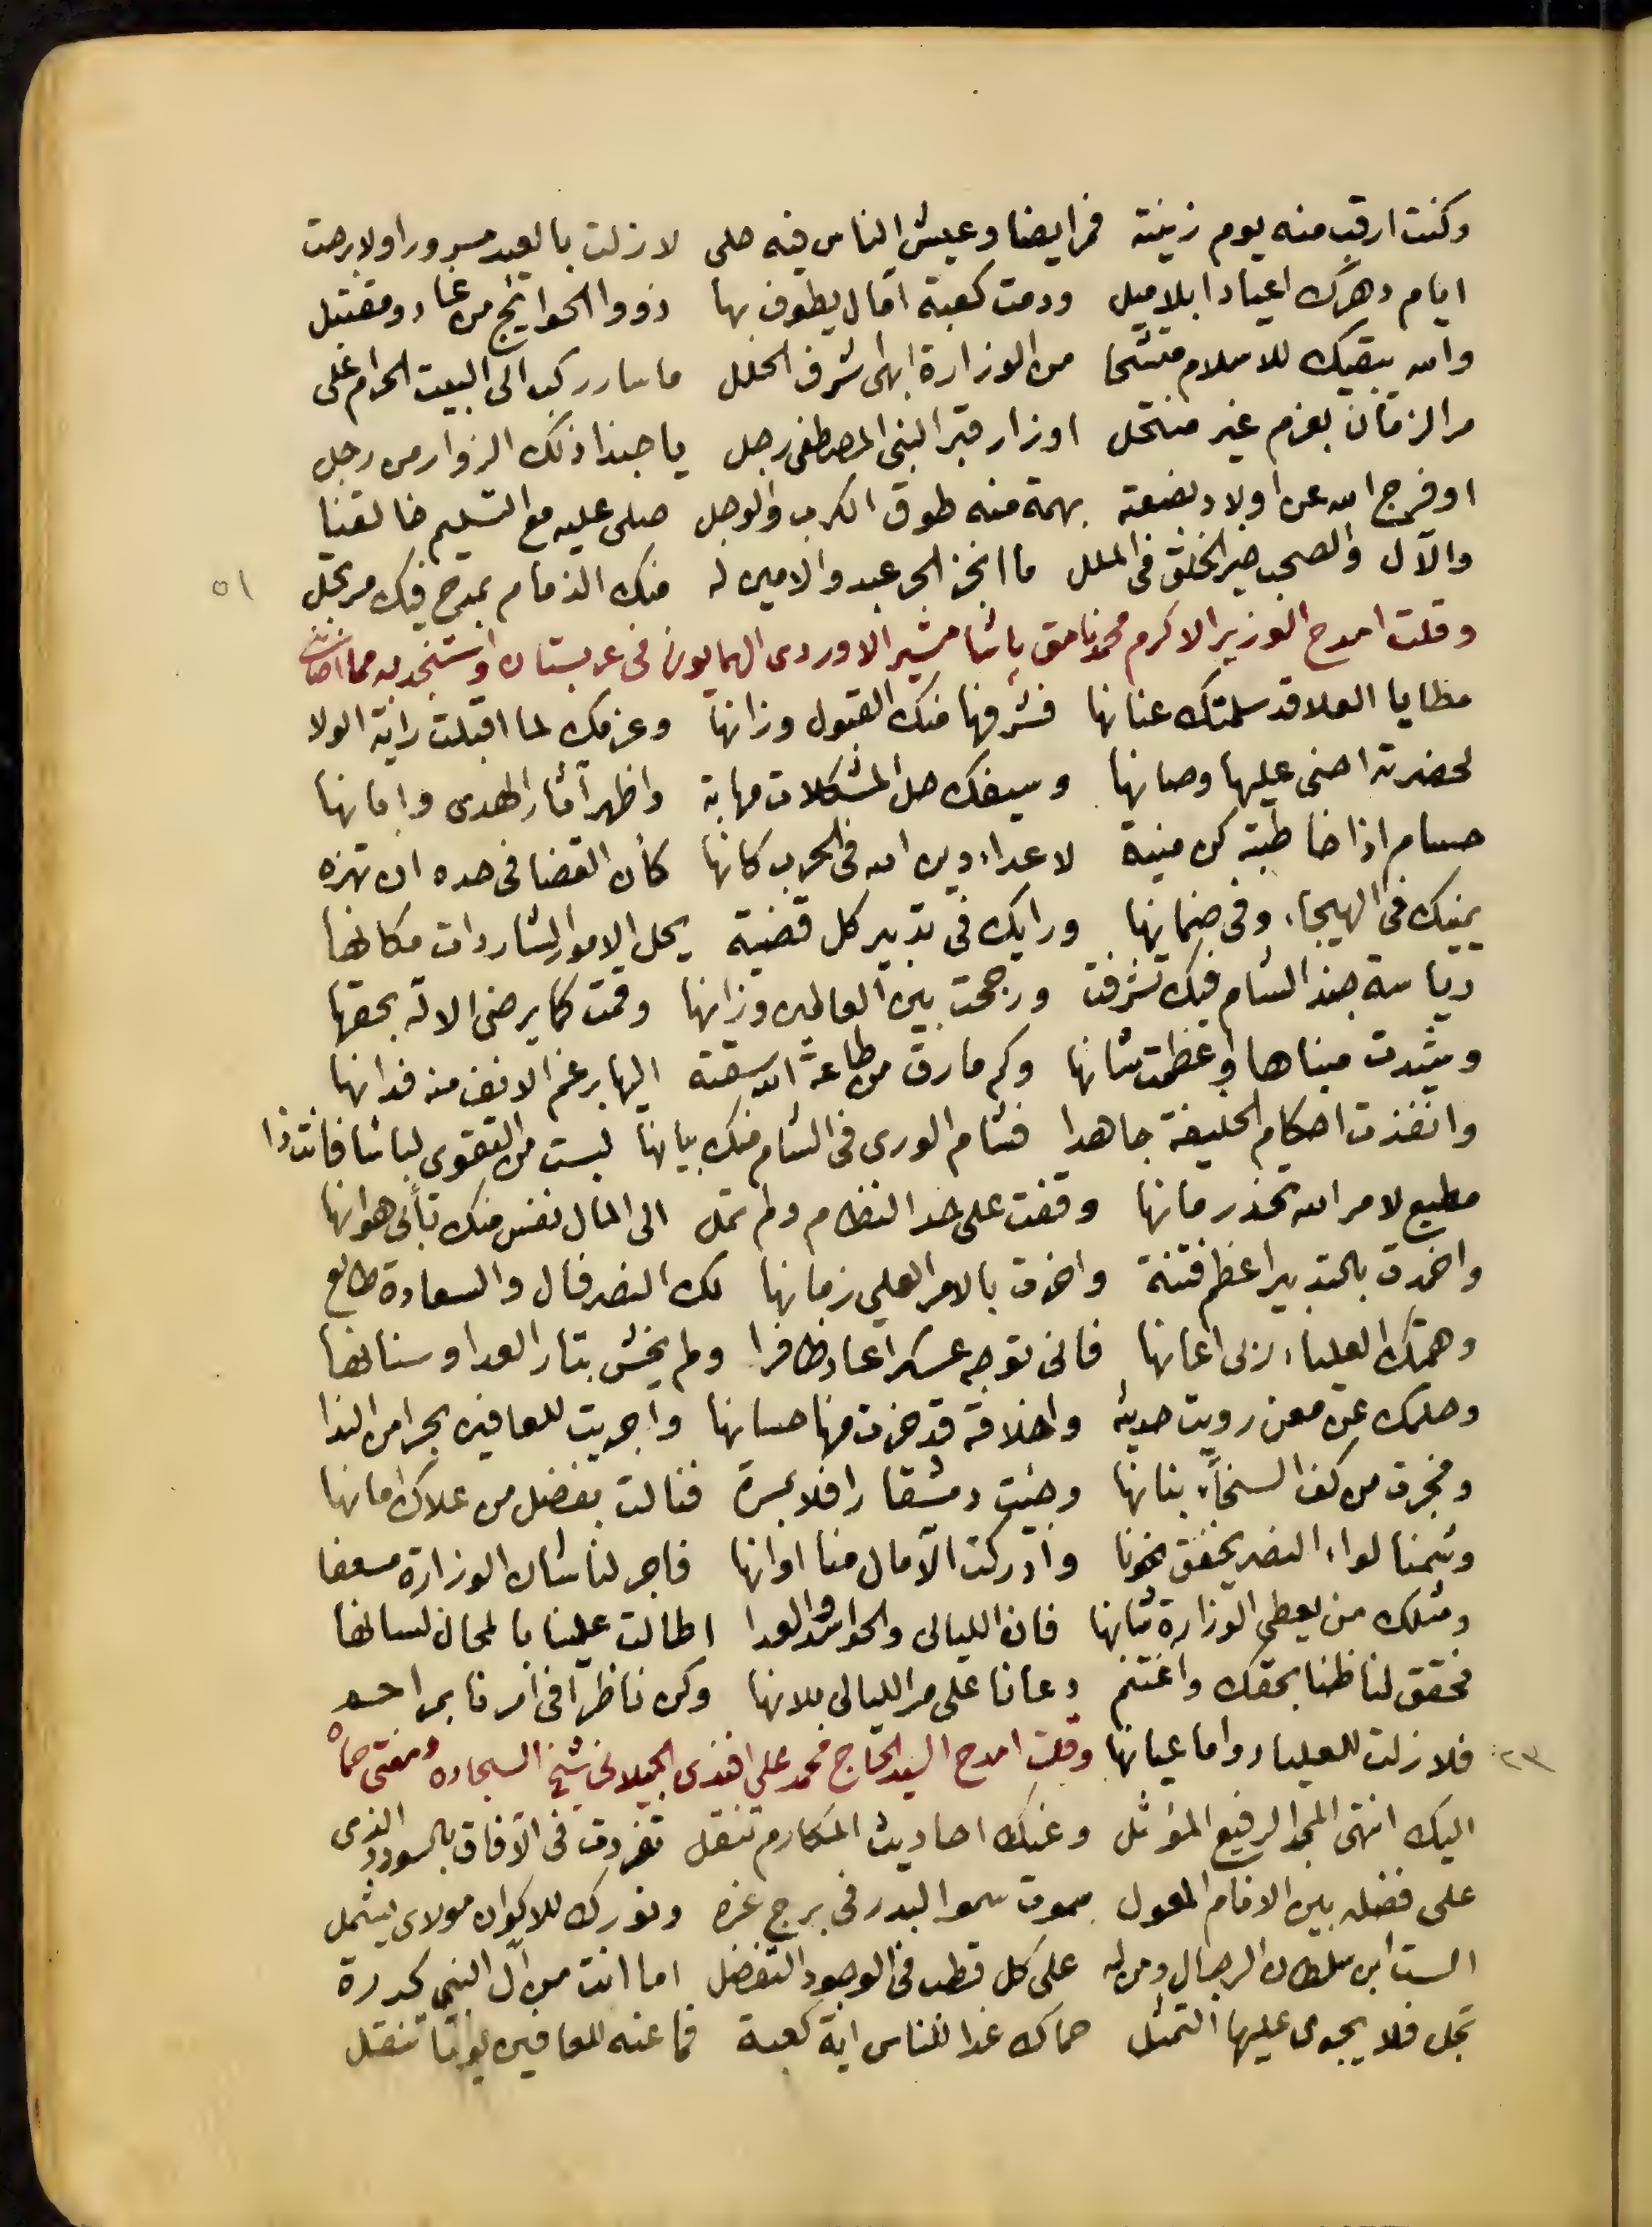 وكنت ارقب منه يوم زينته فمر ايضا وعيش الناس فيه حلى لا زلت بالعيد مسرورا ولا برحت
ايام دهرك اعيادا بلا ميل ودمت كعبة آمال يطوف بها ذووا الحوائج من غاد ومقتبل
والله يبقيك للاسلام متشحا من الوزارة ابهى اشرف الحلل ما سار ركب الى البيت الحرام على
مر الزمان بعزم غير منتحل او زار قبر النبى المصطفى رجل يا حبذا ذلك الزوار من رجل
او فرج الله عن اولاد بضعته بهمة منه طوق الكرب والوجل صلى عليه مع التسليم خالقنا
والآل والصحب خير الخلق فى الملل ما انجز الحر عبد والامين له منك الذمام بمدح فيك مرتجل ٥١
وقلت امدح الوزير الاكرم محمد نامق باشا مشير الاوردى الهمايون فى عربستان واستنجد به مما
مطايا العلا قد سلمتك عنانها فشرفها منك القبول وزانها وعزمك لما اقبلت راية الولا
لحضرته احنى عليها وصانها وسيفك حل المشكلات مهابة واظهر آثار الهدى وابانها
حسام اذا خاطبته كن منية لاعداء دين الله فى الحرب كانها كأن القضا فى حده ان تهزه
يمينك فى الهيجاء وفى ضمانها ورايك فى تدبير كل قضية يحل الامور الشاردات مكانها
رياسة جند الشام فيك تشرفت ورجحت بين العالمين وزانها وقمت كما يرضى الاله بحقها
وشيدت مبناها وعظمت شانها وكم مارق من طاعة الله سقته اليها برغم الانف منه فدانها
وانفذت احكام الخليفة جاهدا فشام الورى فى الشام منك بيانها لبست من التقوى لباسا فانت ذا
مطيع لامر الله تحذر مانها وقفت على حد النظام ولم تمل الى المال نفس منك تأبى هوانها
واخمدت بالتدبير اعظم فتنة واخرت بالامر العلى زمانها لك النصر فال والسعادة طالع
وهمتك العلياء ربى اعانها فانى توجه عسكرا عاد ظافرا ولم يخش بتار العدا وسنانها
وحلمك عن معن رويت حديثه واخلاقه قد حزت منها حسانها واجريت للعافين بحرا من الندا
وفجرت من كف السخاء بنانها وجئت دمشقا رافلا بمسرة فنالت بفضل من علاك امانها
وشمنا لواء النصر يخفق نحونا وادركت الآمال منا اوانها فاجر لنا شان الوزارة مسعفا
ومثلك من يعطى الوزارة شانها فان الليالى والحواسد والعدا اطالت علينا بالمحال لسانها
فحقق لنا ظنا بحقك واغتنم دعانا على مر الليالى بلانها وكن ناظرا فى امرنا بمراحم
فلا زلت للعلياء دواما عيانها وقلت امدح السيد الحاج محمد على افندى الجيلانى شيخ السجاده ومفتى حماه ٢٣
اليك انتهى المجد الرفيع المؤثل وعنك احاديث المكارم تنقل تفردت فى الآفاق بالسودد الذى
على فضله بين الانام المعول سموت سمو البدر فى برج عزه ونورك للاكوان مولاى يشمل
الست ابن سلطان الرجال ومن له على كل قطب فى الوجود التفضل اما انت من آل النبى كدرة
تجل فلا يجوى عليها التمثل حماك غدا للناس اية كعبة فما عنه للعافين يوما تنقل